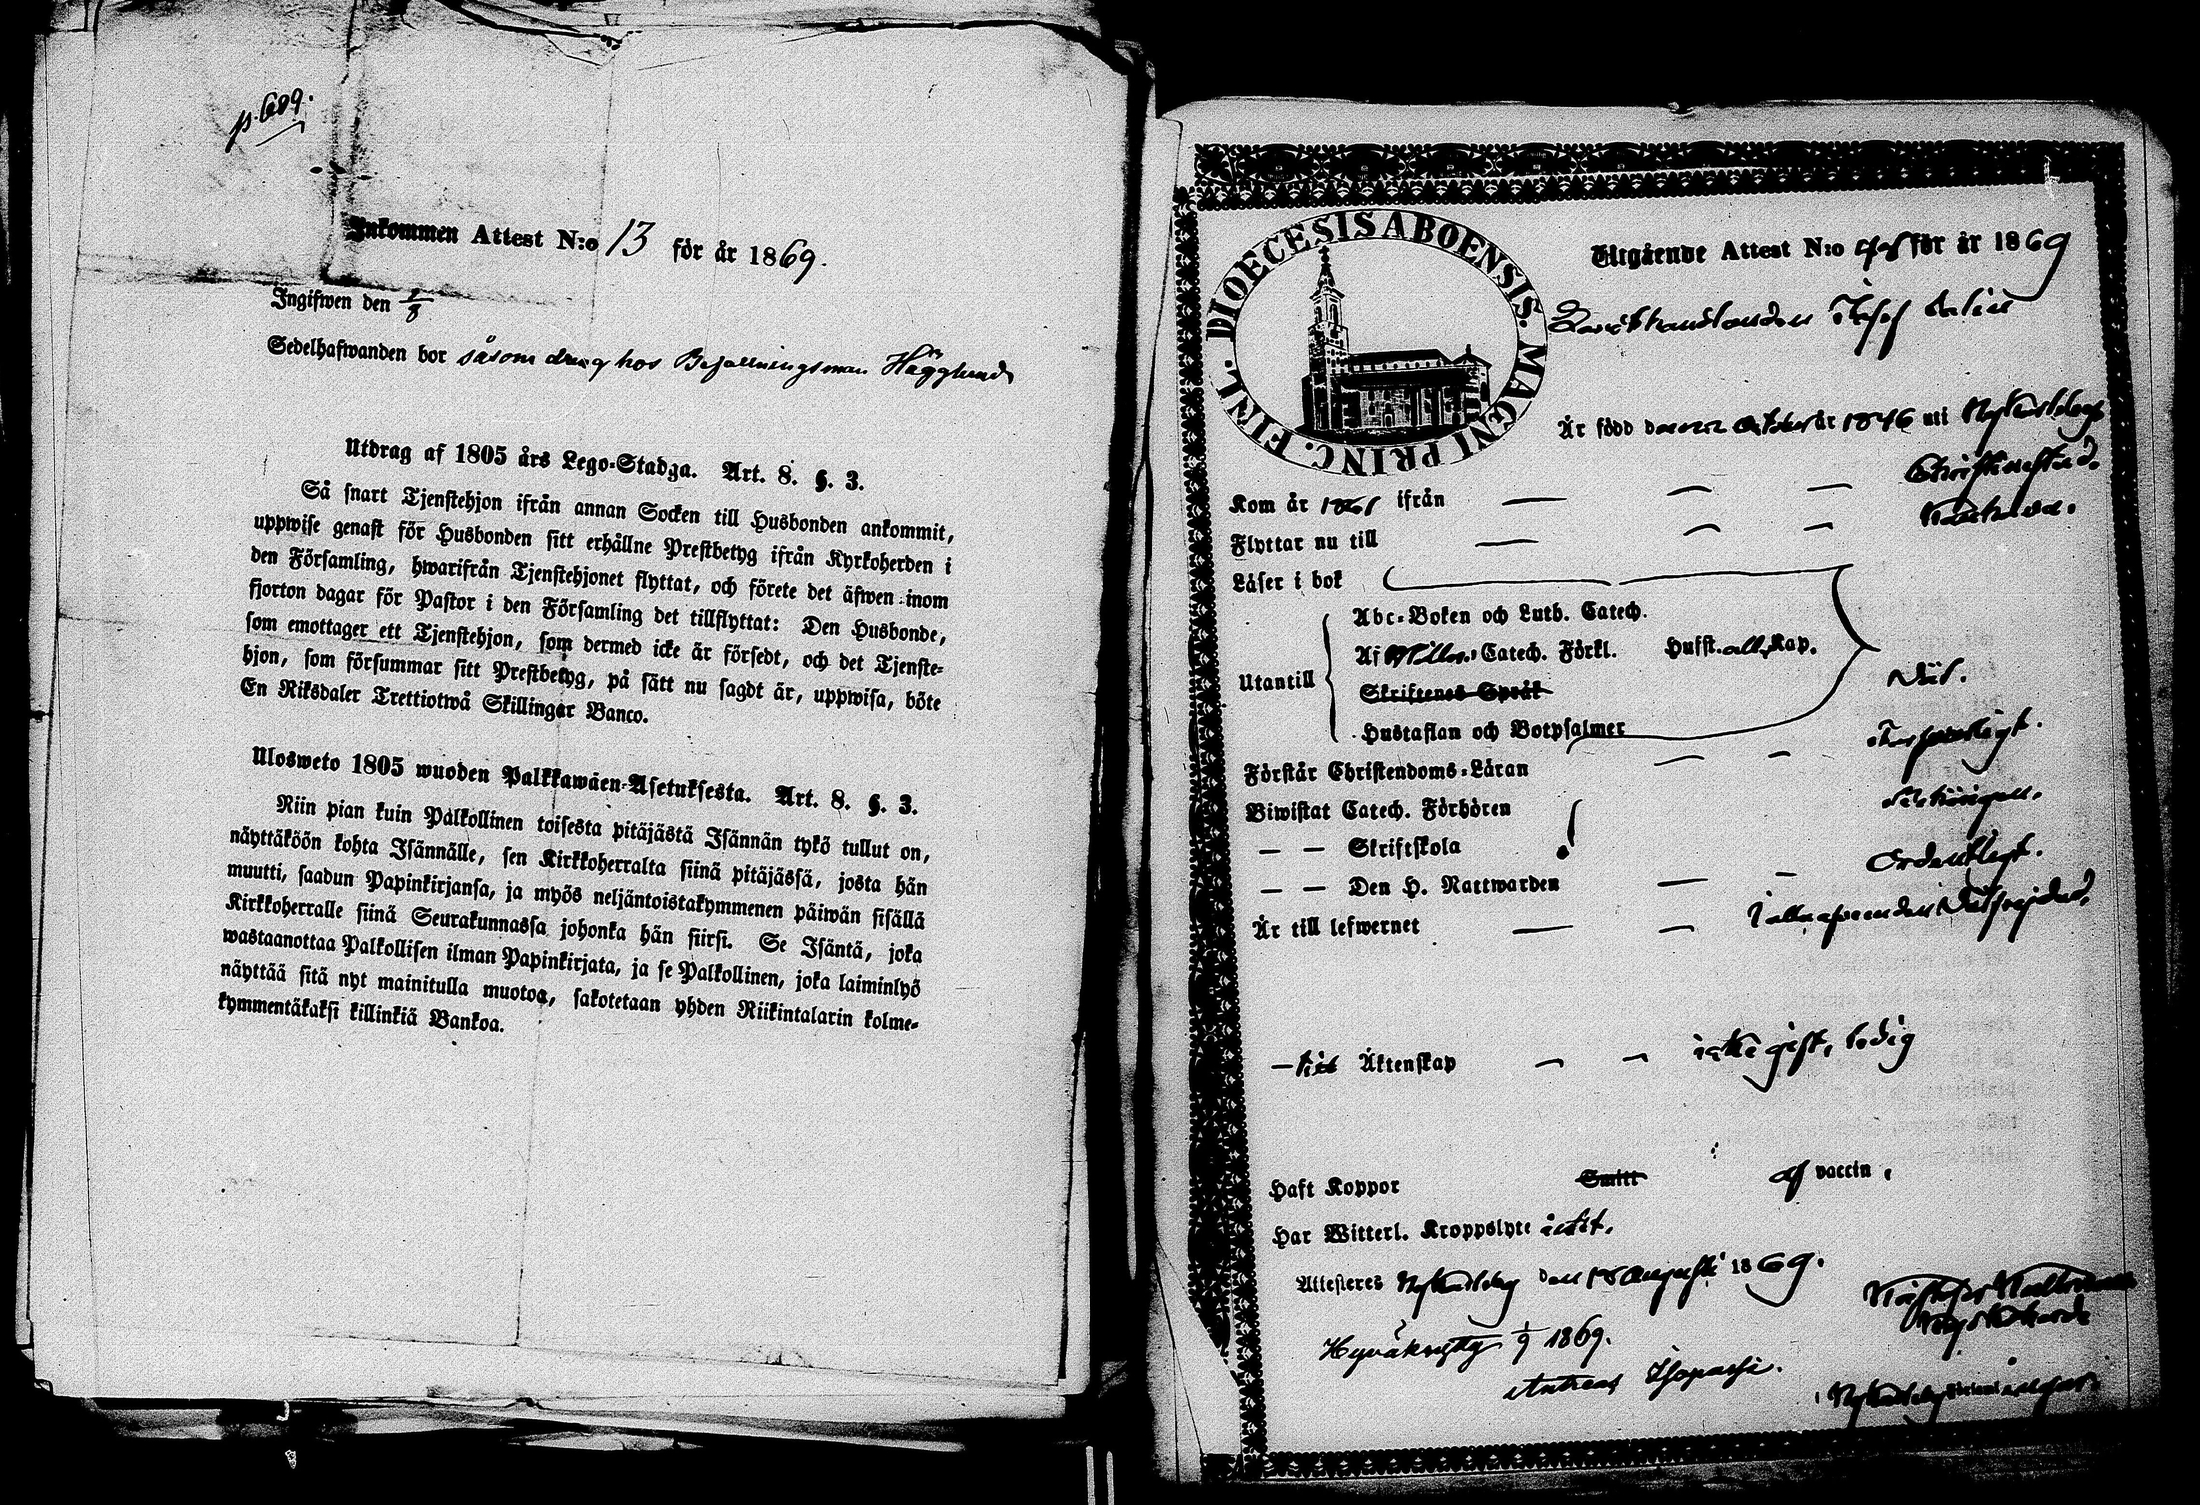 p. 689.
Inkommen Attest N:o 13 för år 1869.
Ingifwen den
Sedelhafwanden bor såsom dräng hos Befallningsman Hägglund
Utdrag af 1805 års Lego-Stadga. Art. 8. §. 3.
Så snart Tjenstehjon ifrån annan Socken till Husbonden ankommit,
uppwise genast för Husbonden sitt erhållne Prestbetyg ifrån Kyrkoherden i
den Församling, hwarifrån Tjenstehjonet flyttat, och förete det äfwen inom
fjorton dagar för Pastor i den Församling det tillflyttat: Den Husbonde,
som emottager ett Tjenstehjon, som dermed icke är försedt, och det Tjenste-
hjon, som försummar sitt Prestbetyg, på sätt nu sagdt är, uppwisa, böte
En Riksdaler Trettiotwå Skillingar Banco.
Ulosweto 1805 wuoden Palkkawäen-Asetuksesta. Art. 8. §. 3.
Niin pian kuin Palkollinen toisesta pitäjästä Isännän tykö tullut on,
näyttäköön kohta Isännälle, sen Kirkkoherralta siinä pitäjässä, josta hän
muutti, saadun Papinkirjansa, ja myös neljäntoistakymmenen päiwän sisällä
Kirkkoherralle siinä Seurakunnassa johonka hän siirsi. Se Isäntä, joka
wastaanottaa Palkollisen ilman Papinkirjata, ja se Palkollinen, joka laiminlyö
näyttää sitä nyt mainitulla muotoa, sakotetaan yhden Riikintalarin kolme-
kymmentäkaksi killinkiä Bankoa.
DIOECESIS ABOENSIS. MAGNI PRINC. FINL.
Utgående Attest N:o för år 1869
Josef
Är född den October år 1846 uti Nykarleby
Kom år 1861 ifrån — — — Christinestad.
Flyttar nu till — — —
Läser i bok
Utantill
Abc-Boken och Luth. Catech.
Af Catech. Förkl. Husst. alla Kap.
Skriftenes Språk
Hustaflan och Botpsalmer
Förstår Christendoms-Läran — —
Biwistat Catech. Förhören
— — Skriftskola
— — Den H. Nattwarden — — Ordentligt.
Är till lefwernet — —
— till Äktenskap — — icke gift, ledig
Haft Koppor Smitt af vaccin.
Har Witterl. Kroppslyte intet.
Attesteres Nykarleby den 18 Augusti 1869.
Hyväksytty 1/9 1869.
Andreas Isopassi.